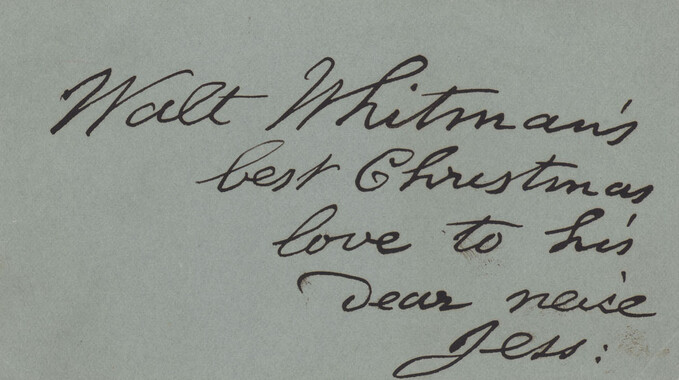 Walt Whitman's
best Christmas
love to his
dear neice
Jess: